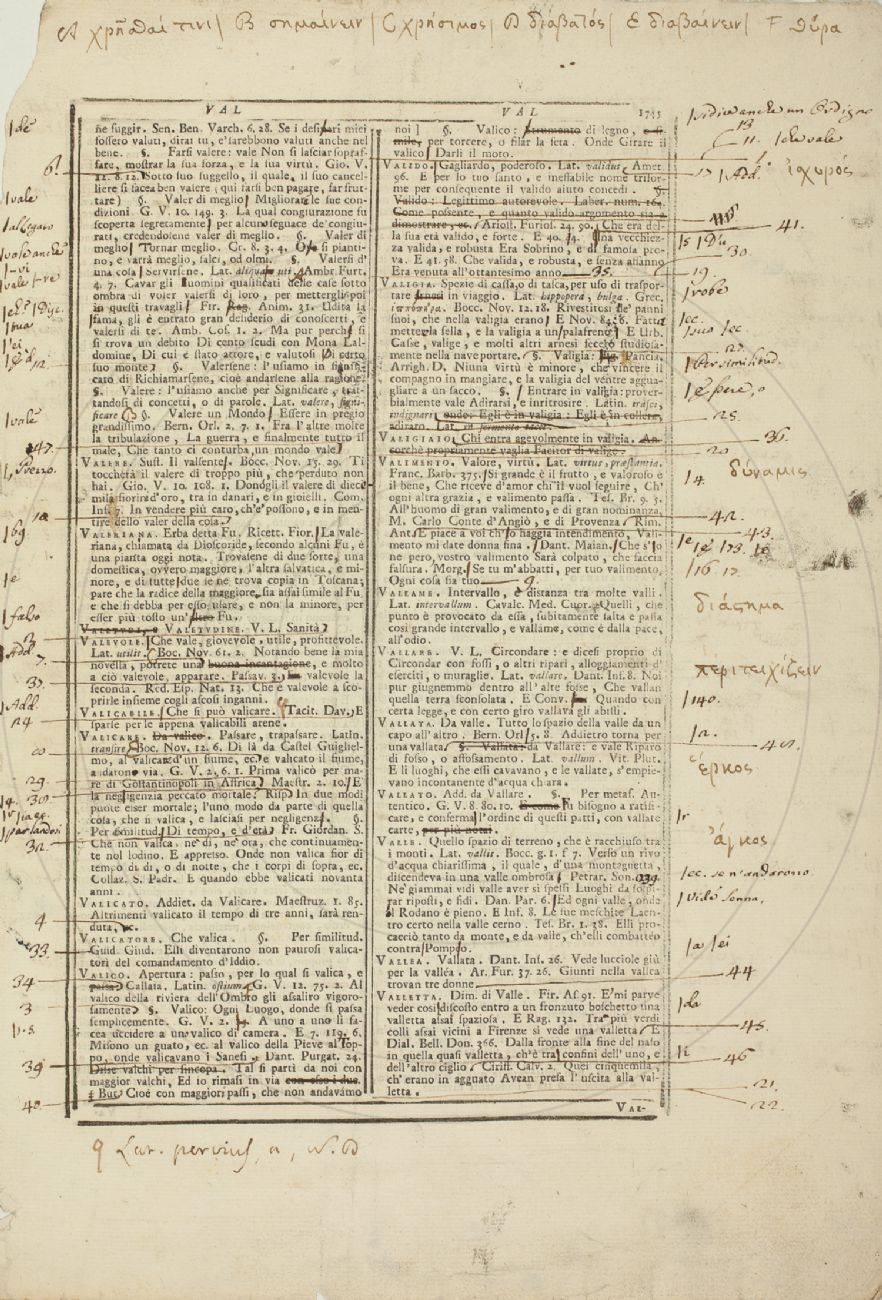 A χρῆσθαί τινι / B σημαίνειν / C χρήσιμος / D διαβατός / E διαβαίνειν / F θύρα
VAL
VAL
ñe suggir. Sen. Ben. Varch. 6. 28. Se i
fossero valuti, dirai tu, e' sarebbono valuti anche nel
bene. §. Farsi valere: vale Non si lasciar sopraf-
fare, mostrar la sua forza, e la sua virtù. Gio. V.
12. 8. 12. Sotto suo suggello, il quale, il suo cancel-
liere si facea ben valere (qui farsi ben pagare, far frut-
tare) §. Valer di meglio Migliorare le sue con-
dizioni G. V. 10. 149. 3. La qual congiurazione fu
scoperta segretamente per alcuno seguace de' congiu-
rati, credendolene valer di meglio. §. Valer di
meglio Tornar meglio. Cr. 8. 3. 4. si pianti-
no, e varrà meglio, salci, od olmi. §. Valersi d'
una cosa Servirsene. Lat. aliqua uti. Ambr. Furt.
4. 7. Cavar gli uomini qualificati delle case sotto
ombra di voler valersi di loro, per mettergli poi
in questi travagli Fir. Rag. Anim. 31. Udita la
fama, gli è entrato gran desiderio di conoscerti, e
valersi di te. Amb. Cof. 1. 2. Ma pur perch si
si trova un debito Di cento scudi con Mona Lal-
domine, Di cui è stato attore, e valutosi Di certo
suo monte §. Valersene: l'usiamo in signifi-
cato di Richiamarsene, cioè andarsene alla ragione.
§. Valere: l'usiamo anche per Significare, trat-
tandosi di concetti, o di parole. Lat. valere, signi-
ficare §. Valere un Mondo Essere in pregio
grandissimo. Bern. Orl. 2. 7. 1. Fra l'altre molte
la tribulazione, La guerra, e finalmente tutto il
male, Che tanto ci conturba, un mondo vale
VALERE. Sust. Il valsente. Bocc. Nov. 15. 29. Ti
toccherà il valere di troppo più, che perduto non
hai. Gio. V. 10. 108. 1. Donogli il valere di dieci
mila fiorin d'oro, tra in danari, e in gioielli. Com.
Inf. 7. In vendere più caro, ch'e' possono, e in men-
tire dello valer della cosa.
VALERIANA. Erba detta Fu. Ricett. Fior. La vale-
riana, chiamata da Dioscoride, secondo alcuni Fu, è
una pianta oggi nota. Trovalene di due sorte, una
domestica, ovvero maggiore, l'altra salvatica, e mi-
nore, e di tutte due se ne trova copia in Toscana;
pare che la radice della maggiore sia assai simile al Fu
e che si debba per esso usare, e non la minore, per
esser più tosto un' Fu
VALETUDINE. V. L. Sanità
VALEVOLE. Che vale, giovevole, utile, profittevole.
Lat. utilis. Bocc. Nov. 61. 2. Notando bene la mia
novella, potrete una buona incantagione, e molto
a ciò valevole, apparare. Passav. 3. valevole la
seconda. Red. Esp. Nat. 13. Che è valevole a sco-
prirle insieme cogli ascosi inganni.
VALICABILE. Che si può valicare. Tacit. Dav. E
sparse per le appena valicabili arene.
VALICARE. Da valico. Passare, trapassare. Latin.
transire. Bocc. Nov. 12. 6. Di là da Castel Guigliel-
mo, al valicare d'un fiume, ec. e valicato il fiume,
andarono via. G. V. 2. 6. 1. Prima valicò per ma-
re di Gostantinopoli in Affrica Maestr. 2. 10. E'
la negligenzia peccato mortale? Risp. In due modi
puote esser mortale; l'uno modo da parte di quella
cosa, che si valica, e lasciasi per negligenza. §.
Per similitud. Di tempo, e d'età Fr. Giordan. S.
Che non valica né dì, né ora, che continuamen-
te nol lodino. E appresso. Onde non valica fior di
tempo, di dì, o di notte, che i corpi di sopra, ec.
Collaz. S. Padr. E quando ebbe valicati novanta
anni.
VALICATO. Addiet. da Valicare. Maestruz. 1. 85.
Altrimenti valicato il tempo di tre anni, sarà ren-
duta, ec.
VALICATORE. Che valica. §. Per similitud.
Guid. Giud. Elli diventarono non paurosi valica-
tori del comandamento d'Iddio.
VALICO. Apertura: passo, per lo qual si valica, e
passa Callaia. Latin. ostium. G. V. 12. 75. 2. Al
valico della riviera dell'Ombro gli assaliro vigoro-
samente §. Valico: Ogni Luogo, donde si passa
semplicemente. G. V. 2. A uno a uno li fa-
cea uccidere a un valico di camera. E 7. 119. 6.
Misono un guato, ec. al valico della Pieve al Top-
po, onde valicavano i Sanesi. Dant. Purgat. 24.
Disse valchi per sincopa. Tal si partì da noi con
maggior valchi, Ed io rimasi in via con esso i due.
But. Cioè con maggiori passi, che non andavamo
1735
noi] §. Valico: strumento di legno, o si-
mile, per torcere, o filar la seta. Onde Girare il
valico Darli il moto.
VALIDO. Gagliardo, poderoso. Lat. validus. Amet.
96. E per lo tuo santo, e ineffabile nome trifor-
me per conseguente il valido aiuto concedi. §.
Valido: Legittimo autorevole. Laber. num. 164.
Come possente, e quanto valido argomento sia a
dimostrare, ec. Ariost. Furios. 24. 90. Che era del-
la sua età valido, e forte. E 40. 54. Una vecchiez-
za valida, e robusta Era Sobrino, e di famosa pro-
va. E 41. 58. Che valida, e robusta, e senza affanno
Era venuta all'ottantesimo anno 35.
VALIGIA. Spezie di cassa, o di tasca, per uso di traspor-
tare arnesi in viaggio. Lat. hippopera, bulga. Grec.
ἱπποπήρα. Bocc. Nov. 12. 18. Rivestitosi de' panni
suoi, che nella valigia erano E Nov. 84. 8. Fatta
metter la sella, e la valigia a un palafreno. E Urb.
Casse, valige, e molti altri arnesi fecelo studiosa-
mente nella nave portare. §. Valigia: Fig. Pancia.
Arrigh. D. Niuna virtù è minore, che vincere il
compagno in mangiare, e la valigia del ventre aggua-
gliare a un sacco. §. Entrare in valigia: prover-
bialmente vale Adirarsi, e inritrosire. Latin. irasci,
indignari onde: Egli è in valigia: Egli è in collera,
adiraro. Lat. in fermento iacet.
VALIGIAIO. Chi entra agevolmente in valigia. An-
corchè propriamente vaglia Facitor di valige.
VALIMENTO. Valore, virtù. Lat. virtus, præstantia.
Franc. Barb. 375. Sì grande è il frutto, e valoroso è
il bene, Che riceve d'amor chi 'l vuol seguire, Ch'
ogni altra grazia, e valimento passa. Tes. Br. 9. 5.
All'huomo di gran valimento, e di gran nominanza,
M. Carlo Conte d'Angiò, e di Provenza. Rim.
Ant. E piace a voi ch'io haggia intendimento, Vali-
mento mi date donna fina. Dant. Maian. Che s'io
ne pero, vostro valimento Sarà colpato, che faccia
falsura. Morg. Se tu m'abbatti, per tuo valimento,
Ogni cosa sia tuo 9.
VALLAME. Intervallo, e distanza tra molte valli.
Lat. intervallum. Cavalc. Med. Cupr. Quelli, che
punto è provocato da essa, subitamente salta e passa
così grande intervallo, e vallame, come è dalla pace,
all'odio.
VALLARE. V. L. Circondare: e dicesi proprio di
Circondar con fossi, o altri ripari, alloggiamenti d'
eserciti, o muraglie. Lat. vallare. Dant. Inf. 8. Noi
pur giugnemmo dentro all'alte fosse, Che vallan
quella terra sconsolata. E Conv. Quando con
certa legge, e con certo giro vallava gli abissi.
VALLATA. Da valle. Tutto lo spazio della valle da un
capo all'altro. Bern. Orl. 5. 8. Addietro torna per
una vallata §. Vallata: da Vallare: e vale Riparo
di fosso, o affossamento. Lat. vallum. Vit. Plut.
E li luoghi, che essi cavavano, e le vallate, s'empie-
vano incontanente d'acqua chiara.
VALLATO. Add. da Vallare. §. Per metaf. Au-
tentico. G. V. 8. 80. 10. E come Fu bisogno a ratifi-
care, e confermar l'ordine di questi patti, con vallate
carte, per più notai.
VALLE. Quello spazio di terreno, che è racchiuso tra
i monti. Lat. vallis. Bocc. g. 1. f 7. Verso un rivo
d'acqua chiarissima, il quale, d'una montagnetta,
discendeva in una valle ombrosa Petrar. Son. 239.
Ne' giammai vidi valle aver sì spessi Luoghi da sospi-
rar riposti, e fidi. Dan. Par. 6. Ed ogni valle, onde
al Rodano è pieno. E Inf. 8. Le sue meschite Laen-
tro certo nella valle cerno. Tes. Br. 1. 38. Elli pro-
cacciò tanto da monte, e da valle, ch'elli combatteo
contra Pompeo.
VALLEA. Vallata. Dant. Inf. 26. Vede lucciole giù
per la valléa. Ar. Fur. 37. 26. Giunti nella vallea
trovan tre donne
VALLETTA. Dim. di Valle. Fir. As. 91. E' mi parve
veder così discosto entro a un fronzuto boschetto una
valletta assai spaziosa. E Rag. 132. Tra più verdi
colli assai vicini a Firenze si vede una valletta E
Dial. Bell. Don. 366. Dalla fronte alla fine del naso
in quella quasi valletta, ch'è tra' confini dell'uno, e
dell'altro ciglio Ciriff. Calv. 2. Quei cinquemila,
ch'erano in agguato Avean presa l'uscita alla val-
letta.
VAL-
ἰσχυρός
δύναμις
διάστημα
περιτειχίζειν
ἕρκος
ἄγκος
vale
allegaro
vale anche
vale
falso
Add.
41.
30.
19.
robe
25
36.
20
42.
43.
140.
ec. se n'andarono
44
45.
46
21.
22.
47.
7.
24
29.
30.
32.
4
33.
34
3
39
40.
q Lat. pervius, a,